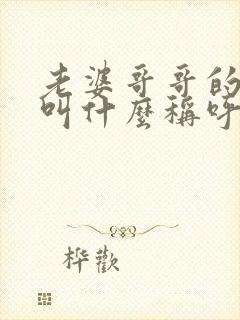 老婆哥哥的
叫什麼稱呼
桦歡